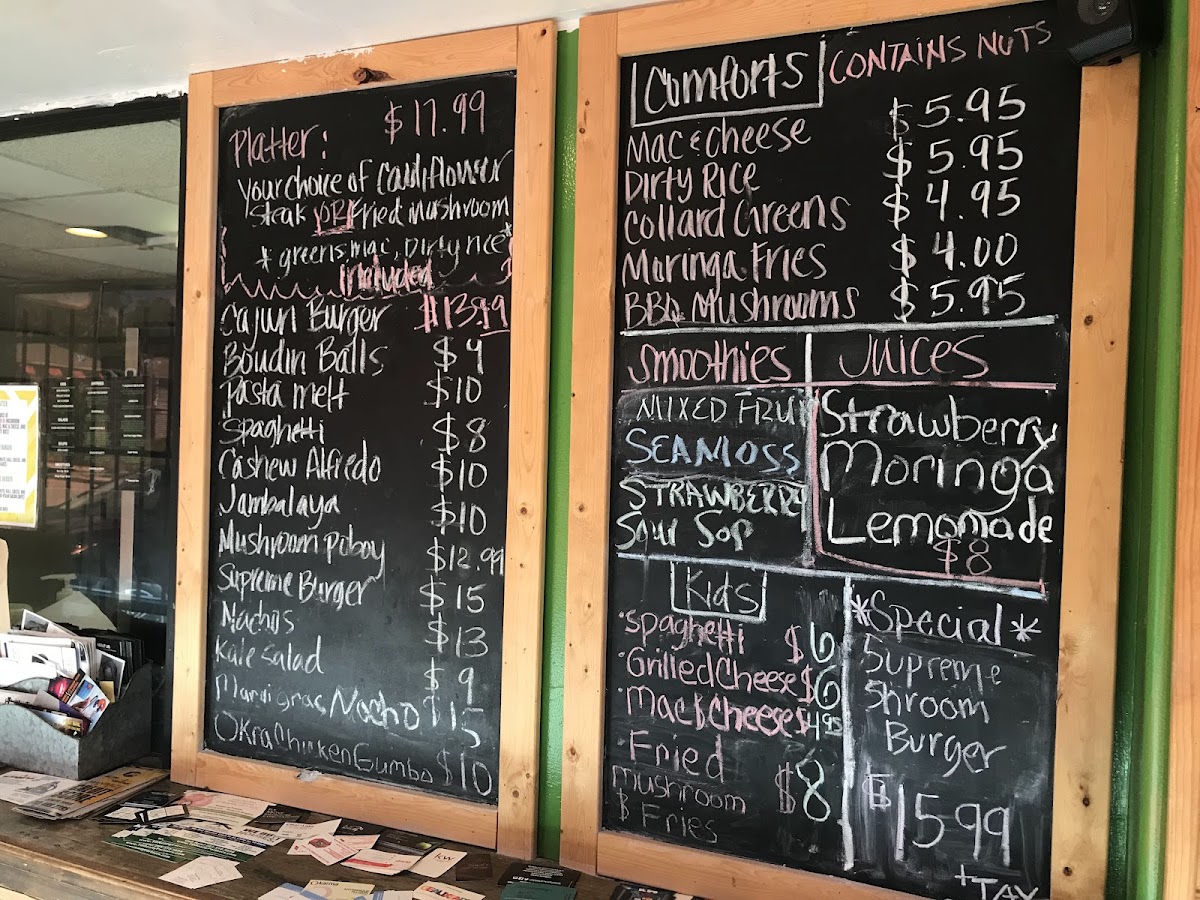 Platter: $17.99
your choice of Cauliflower
steak OR Fried mushroom
*greens, mac, Dirty rice*
included
Cajun Burger $13.99
Boudin Balls $9
Pasta melt $10
Spaghetti $8
Cashew Alfredo $10
Jambalaya $10
Mushroom poboy $12.99
Supreme Burger $15
Nachos $13
Kale salad $9
Mardi gras Nacho $15
Okra Chicken Gumbo $10
Comforts CONTAINS NUTS
Mac & Cheese $5.95
Dirty Rice $5.95
Collard Greens $4.95
Moringa Fries $4.00
BBQ Mushrooms $5.95
Smoothies
MIXED FRUI
SEAMOSS
STRAWBERRY
Sour Sop
Juices
Strawberry
Moringa
Lemomade
$8
Kids
·spaghetti $6
·Grilled Cheese $6
·Mac & Cheese $4.95
·Fried
mushroom $8
$ Fries
*Special*
Supreme
Shroom
Burger
$15.99
+TAX